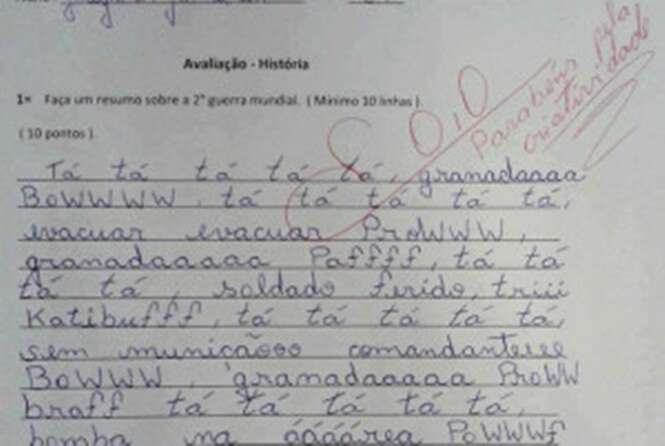 Avaliação - História
1= Faça um resumo sobre a 2ª guerra mundial. ( Mínimo 10 linhas )
( 10 pontos )
0,0
Parabéns pela
criatividade
Tá tá tá tá tá, granadaaaa
BOWWWW, tá tá tá tá tá,
evacuar evacuar PROWWW,
granadaaaaaa Paffff, tá tá
tá tá, soldado ferido, triii
Katibufff, tá tá tá tá tá,
sem muniçãooo comandanteeee
BOWWW, granadaaaaaa PROWW
braff tá tá tá tá tá,
bomba na áááárea POWWWf